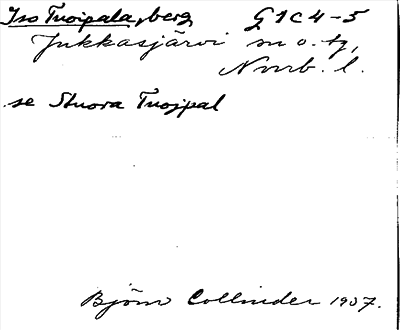 Iso Tuoipala, berg, G1C4-5
Jukkasjärvi sn o. tg,
Norrb. l.
se Stuora Tuojpal
Björn Collinder 1937.